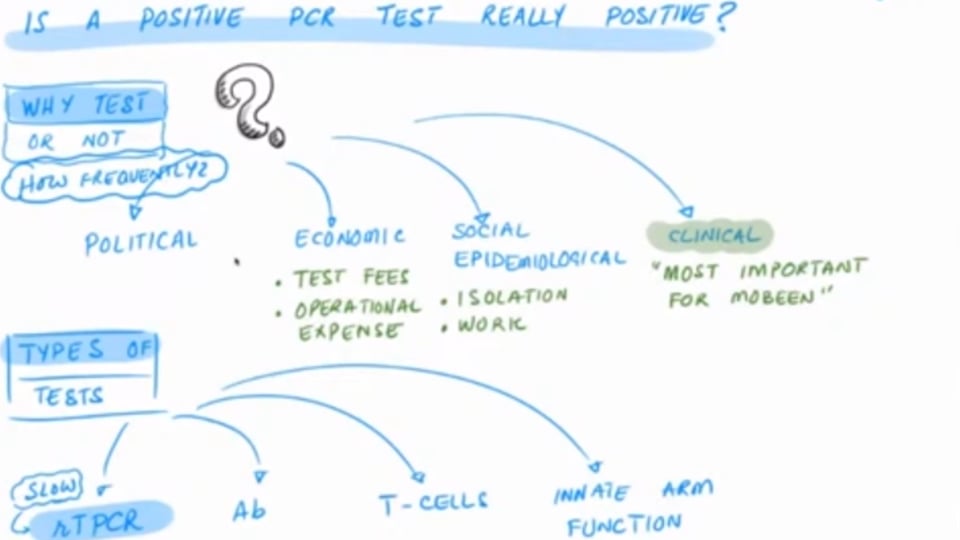 IS A POSITIVE PCR TEST REALLY POSITIVE?
WHY TEST
OR NOT
HOW FREQUENTLY?
POLITICAL
ECONOMIC
• TEST FEES
• OPERATIONAL
EXPENSE
SOCIAL
EPIDEMIOLOGICAL
• ISOLATION
• WORK
CLINICAL
"MOST IMPORTANT
FOR MOBEEN"
TYPES OF
TESTS
SLOW
rTPCR
Ab
T-CELLS
INNATE ARM
FUNCTION